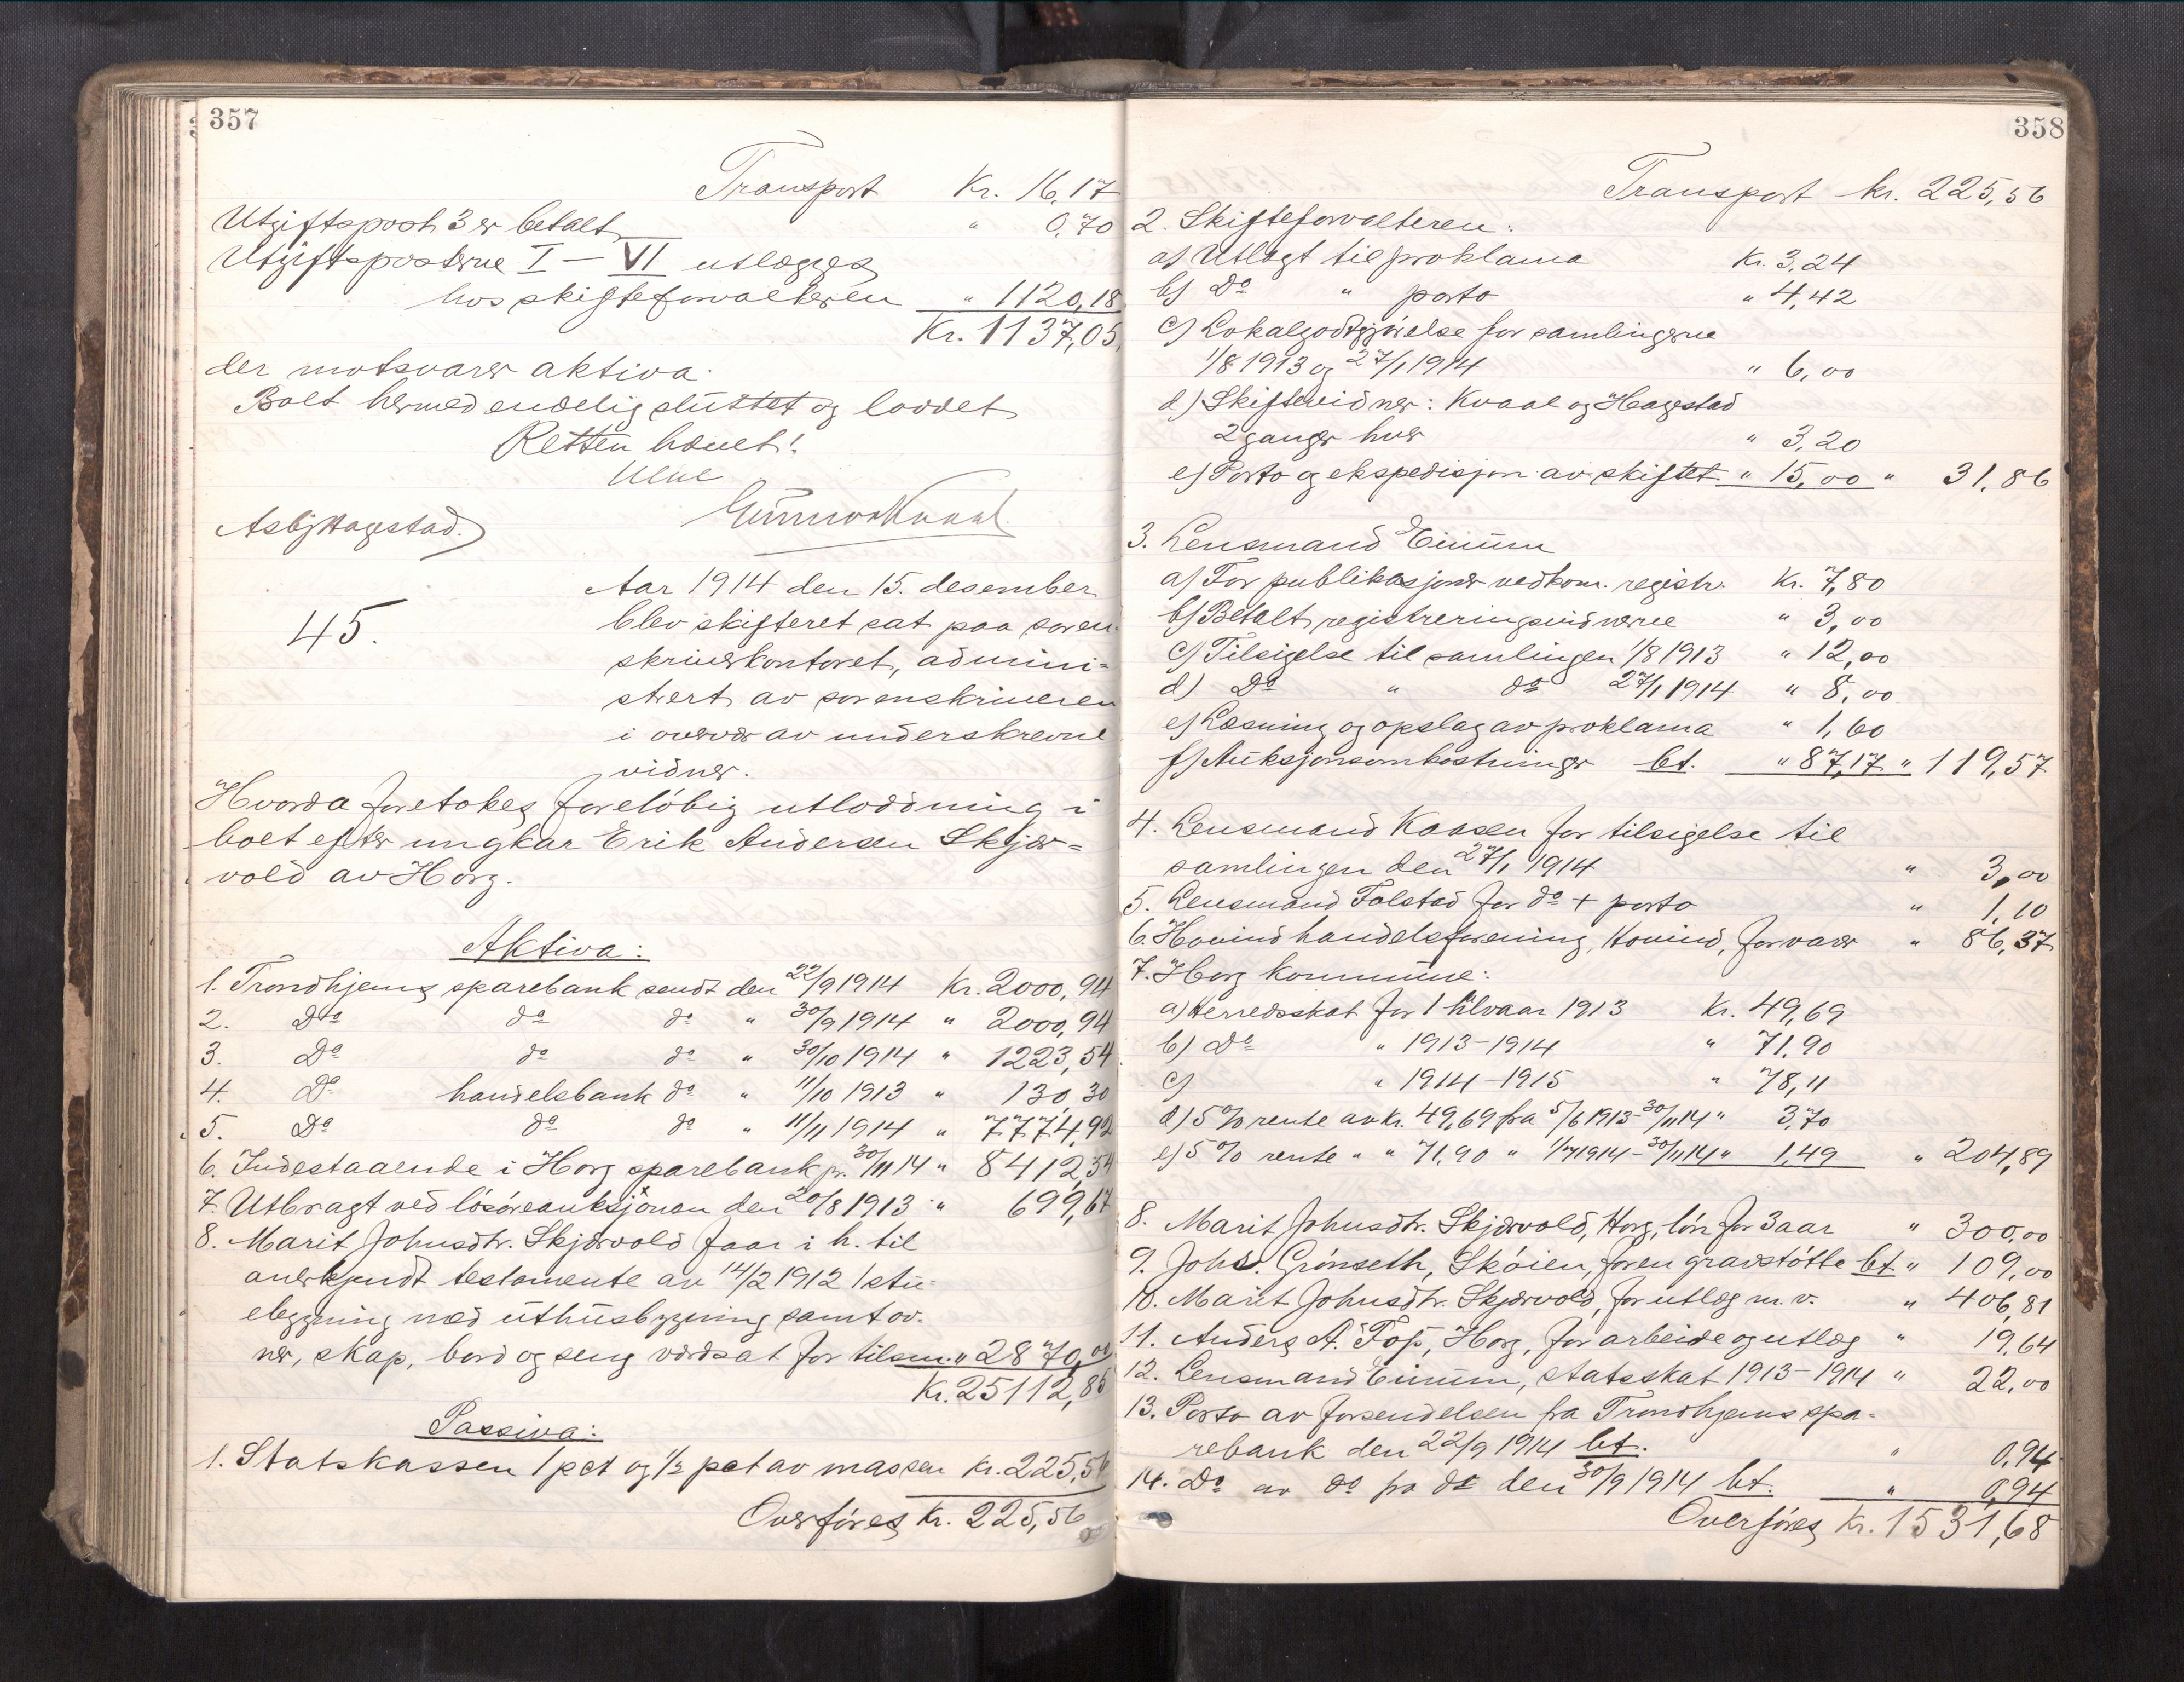 357
Transport Kr. 16,17
Utgiftspost 3 er betalt " 0,70
Utgiftsposterne I – VI utlægges
hos skifteforvalteren " 1120,18
Kr. 1137,05
der motsvarer aktiva.
Boet hermed endelig sluttet og loddet
Retten hævet!
Asbj Hagestad. Gunnar Kvaal
45.
Aar 1914 den 15. desember
blev skifteret sat paa soren-
skriverkontoret, admini=
strert av sorenskriveren
i overvær av underskrevne
vidner.
Hvorda foretokes foreløbig utlodning i
boet efter ungkar Erik Andersen Skjær=
vold av Horg.
Aktiva:
1. Trondhjems sparebank sendt den 22/9 1914 Kr. 2000,94
2. Do do do " 30/9 1914 " 2000,94
3. Do do do " 30/10 1914 " 1223,54
4. Do handelsbank do " 11/10 1913 " 130,30
5. Do do do " 11/11 1914 " 7774,92
6. Indestaaende i Horg sparebank pr. 30/11 14 " 8412,54
7. Utbragt ved løsøreauksjonen den 20/8 1913 " 699,67
8. Marit Johnsdtr. Skjærvold faar i h. til
anerkjendt testamente av 14/2 1912 1 stu-
ebygning med uthusbygning samt ov-
ner, skap, bord og seng værdsat for tilsm. " 2870,00
Kr. 25112,85
Passiva:
1. Statskassen 1 pct og 1/2 pct av massen Kr. 225,56
Overføres Kr. 225,56
358
Transport kr. 225,56
2. Skifteforvalteren:
a) Utlagt til proklama Kr. 3,24
b) Do " porto " 4,42
c) Lokalgodtgjørelse for samlingerne
1/8 1913 og 27/1 1914 " 6,00
d) Skiftevidner: Kvaal og Hagestad
2 ganger hver " 3,20
e) Porto og ekspedisjon av skiftet " 15,00 " 31,86
3. Lensmand Einum
a) For publikasjoner vedkom. registr. Kr. 7,80
b) Betalt registreringsvidnerne " 3,00
c) Tilsigelse til samlingen 1/8 1913 " 12,00
d) Do " do 27/1 1914 " 8,00
e) Læsning og opslag av proklama " 1,60
f) Auksjonsomkostninger bt. " 87,17 " 119,57
4. Lensmand Kaasen for tilsigelse til
samlingen den 27/1 1914 " 3,00
5. Lensmand Folstad for do + porto " 1,10
6. Hovind handelsforening, Hovind, for varer " 86,37
7. Horg kommune:
a) Herredsskat for 1 halvaar 1913 Kr. 49,69
b) Do " 1913–1914 " 71,90
c) " 1914–1915 " 78,11
d) 5 % rente av kr. 49,69 fra 5/6 1913–30/11 14 " 3,70
e) 5 % rente " " 71,90 " 1/7 1914–30/11 14 " 1,49 " 204,89
8. Marit Johnsdtr. Skjærvold, Horg, løn for 3 aar " 300,00
9. Johs. Grinseth, Skøien, for en gravstøtte bt. " 109,00
10. Marit Johnsdtr. Skjærvold, for utlæg m.v. " 406,81
11. Anders A. Fop, Horg, for arbeide og utlæg " 19,64
12. Lensmand Einum, statsskat 1913–1914 " 22,00
13. Porto av forsendelsen fra Trondhjems spa-
rebank den 22/9 1914 bt. " 0,94
14. Do av do fra do den 30/9 1914 bt. " 0,94
Overføres Kr. 1531,68